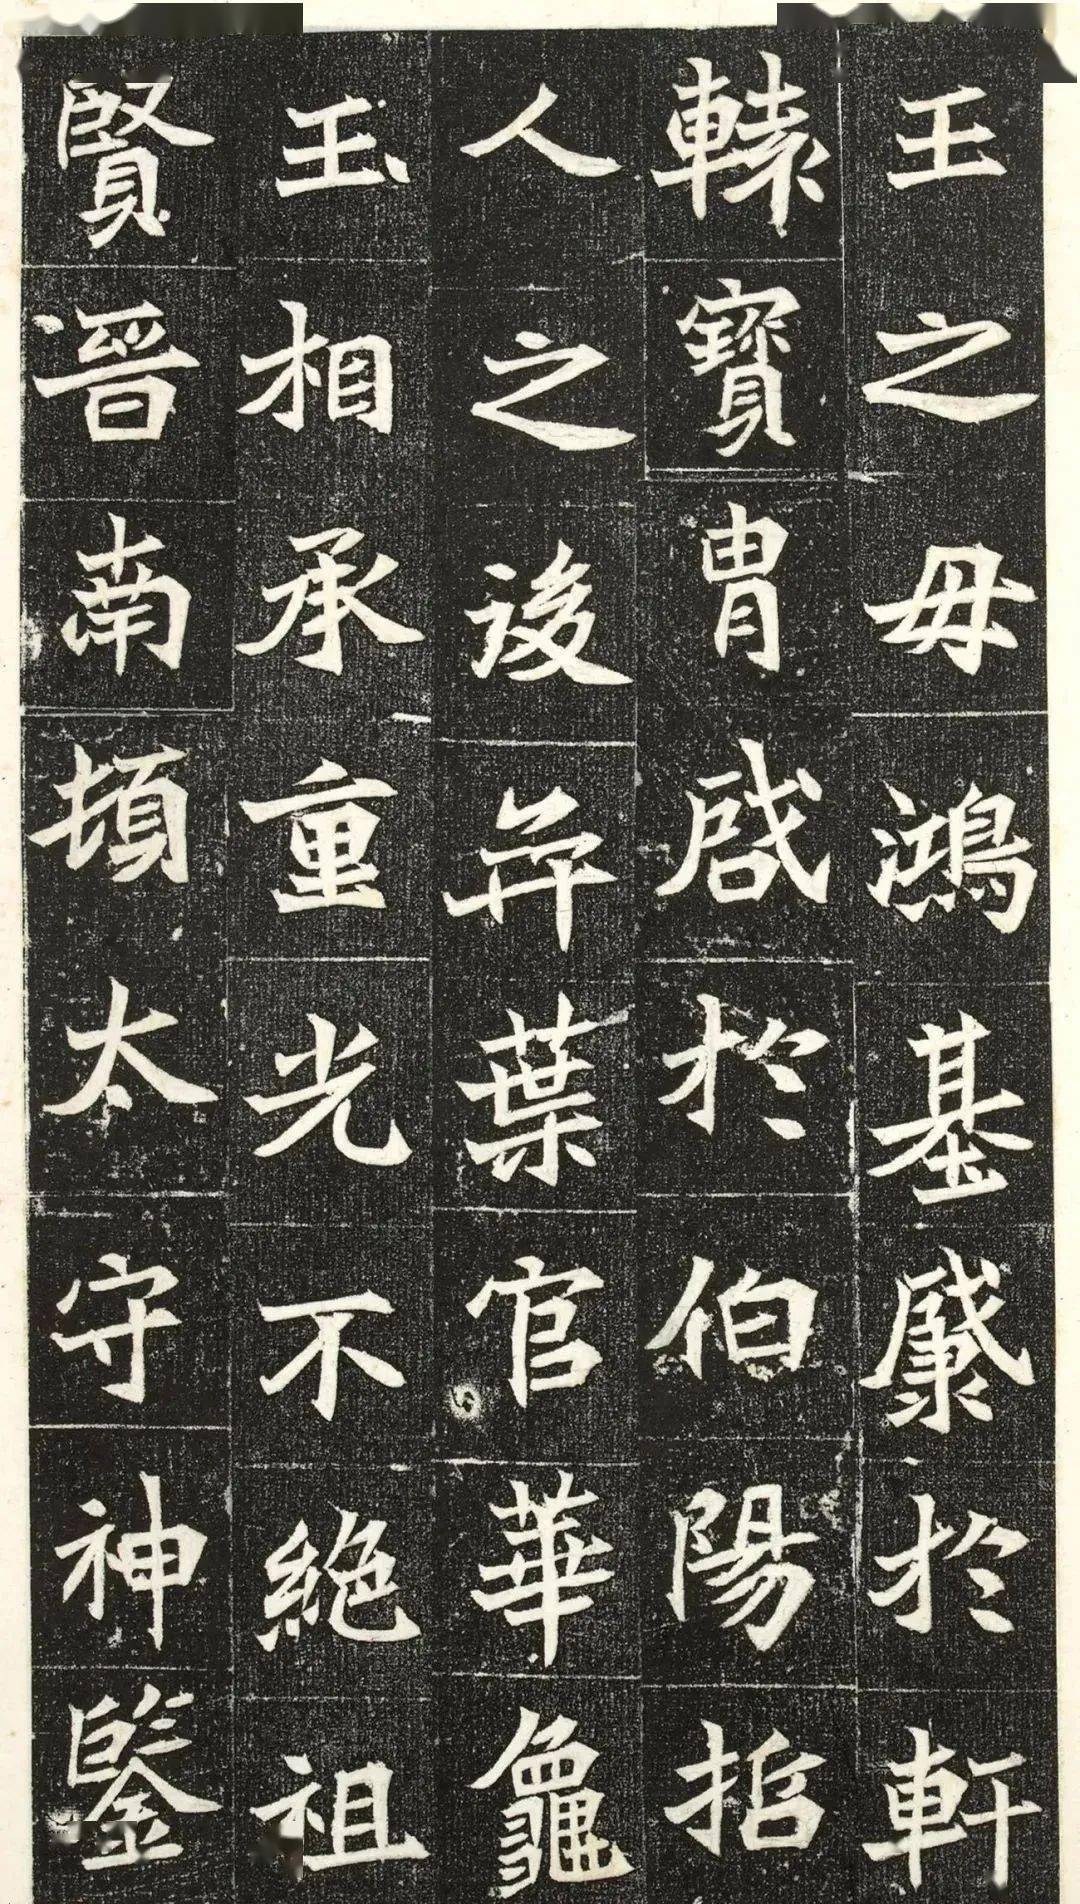 王之毋鴻基肇於軒
轅寳胄啓於伯陽哲
人之後弈葉官華龜
玉相承重光不絶祖
賢晉南頓太守神鑒